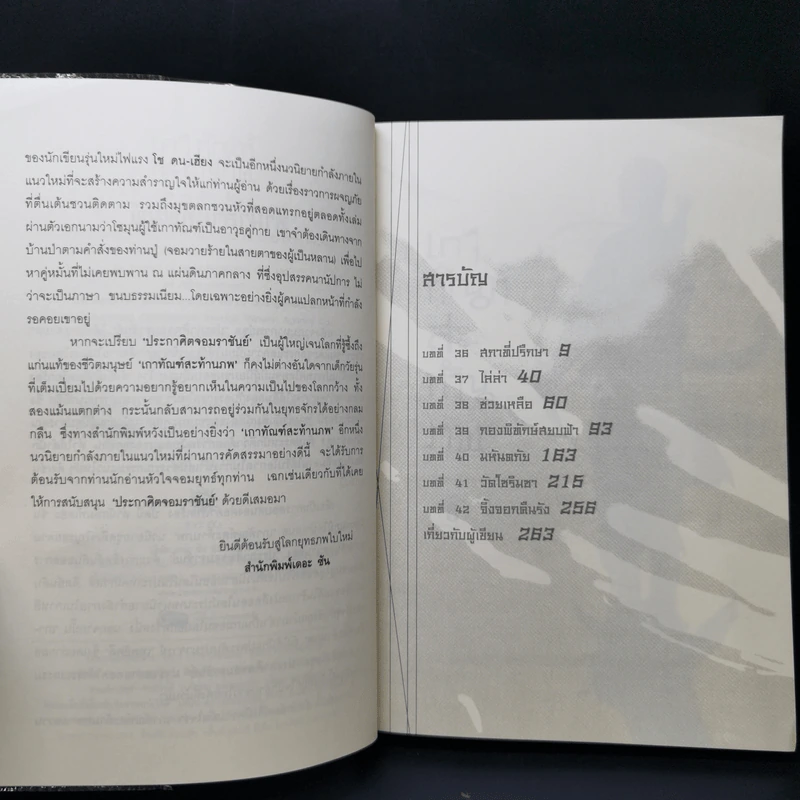 ของนักเขียนรุ่นใหม่ไฟแรง โช ดน-เฮียง จะเป็นอีกหนึ่งนวนิยายกำลังภายใน
แนวใหม่ที่จะสร้างความสำราญใจให้แก่ท่านผู้อ่าน ด้วยเรื่องราวการผจญภัย
ที่ตื่นเต้นชวนติดตาม รวมถึงมุขตลกชวนหัวที่สอดแทรกอยู่ตลอดทั้งเล่ม
ผ่านตัวเอกนามว่าโซมุนผู้ใช้เกาทัณฑ์เป็นอาวุธคู่กาย เขาจำต้องเดินทางจาก
บ้านป่าตามคำสั่งของท่านปู่ (จอมวายร้ายในสายตาของผู้เป็นหลาน) เพื่อไป
หาคู่หมั้นที่ไม่เคยพบพาน ณ แผ่นดินภาคกลาง ที่ซึ่งอุปสรรคนานัปการ ไม่
ว่าจะเป็นภาษา ขนบธรรมเนียม...โดยเฉพาะอย่างยิ่งผู้คนแปลกหน้าที่กำลัง
รอคอยเขาอยู่
หากจะเปรียบ 'ประกาศิตจอมราชันย์' เป็นผู้ใหญ่เจนโลกที่รู้ซึ้งถึง
แก่นแท้ของชีวิตมนุษย์ 'เกาทัณฑ์สะท้านภพ' ก็คงไม่ต่างอันใดจากเด็กวัยรุ่น
ที่เต็มเปี่ยมไปด้วยความอยากรู้อยากเห็นในความเป็นไปของโลกกว้าง ทั้ง
สองแม้นแตกต่าง กระนั้นกลับสามารถอยู่ร่วมกันในยุทธจักรได้อย่างกลม
กลืน ซึ่งทางสำนักพิมพ์หวังเป็นอย่างยิ่งว่า 'เกาทัณฑ์สะท้านภพ' อีกหนึ่ง
นวนิยายกำลังภายในแนวใหม่ที่ผ่านการคัดสรรมาอย่างดีนี้ จะได้รับการ
ต้อนรับจากท่านนักอ่านหัวใจจอมยุทธ์ทุกท่าน เฉกเช่นเดียวกับที่ได้เคย
ให้การสนับสนุน 'ประกาศิตจอมราชันย์' ด้วยดีเสมอมา
ยินดีต้อนรับสู่โลกยุทธภพใบใหม่
สำนักพิมพ์เดอะ ซัน
สารบัญ
บทที่ 36 สภาที่ปรึกษา 9
บทที่ 37 ไล่ล่า 40
บทที่ 38 ช่วยเหลือ 60
บทที่ 39 กองพิทักษ์สยบฟ้า 93
บทที่ 40 มหันตภัย 163
บทที่ 41 วัดโซริมซา 215
บทที่ 42 จิ้งจอกคืนรัง 256
เกี่ยวกับผู้เขียน 263